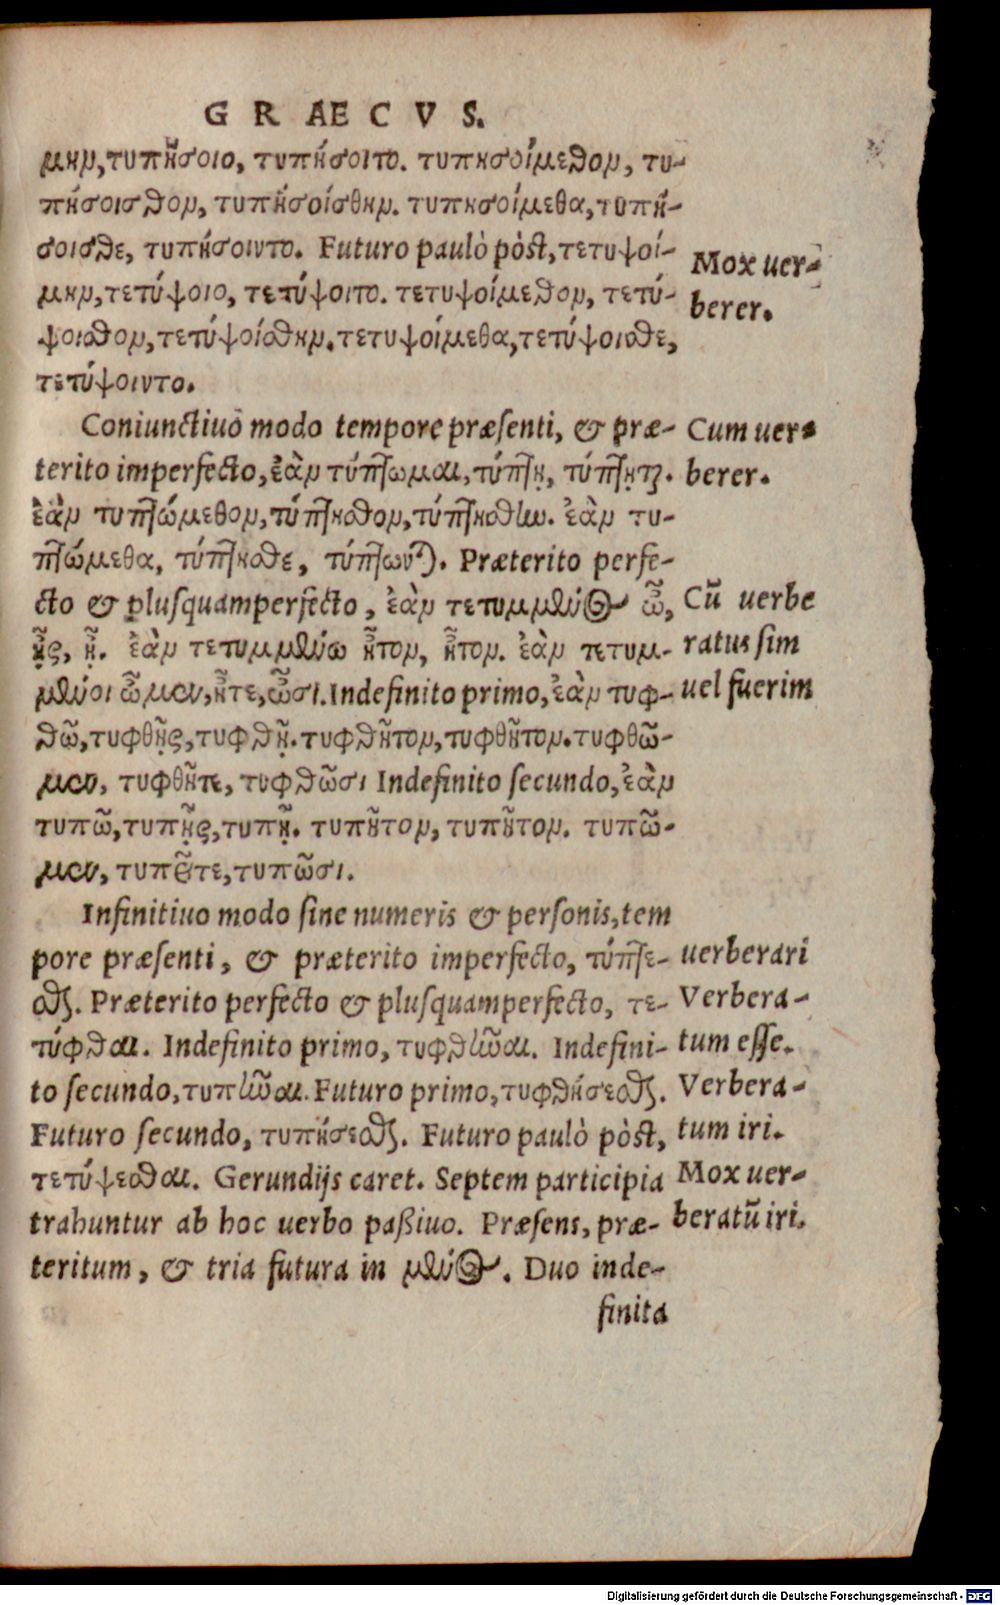 GRAECVS.
μην, τυπήσοιο, τυπήσοιτο. τυπησοίμεθον, τυ-
πήσοισθον, τυπησοίσθην. τυπησοίμεθα, τυπή-
σοισθε, τυπήσοιντο. Futuro paulò pòst, τετυψοί-
μην, τετύψοιο, τετύψοιτο. τετυψοίμεθον, τετύ-
ψοισθον, τετυψοίσθην. τετυψοίμεθα, τετύψοισθε,
τετύψοιντο.
Mox uer-
berer.
Coniunctiuo modo tempore præsenti, & præ-
terito imperfecto, ἐὰν τύπτωμαι, τύπτῃ, τύπτηται.
ἐὰν τυπτώμεθον, τύπτησθον, τύπτησθον. ἐὰν τυ-
πτώμεθα, τύπτησθε, τύπτωνται. Præterito perfe-
cto & plusquamperfecto, ἐὰν τετυμμένος ὦ,
ᾖς, ᾖ. ἐὰν τετυμμένω ἦτον, ἦτον. ἐὰν τετυμ-
μένοι ὦμεν, ἦτε, ὦσι. Indefinito primo, ἐὰν τυφ-
θῶ, τυφθῇς, τυφθῇ. τυφθῆτον, τυφθῆτον. τυφθῶ-
μεν, τυφθῆτε, τυφθῶσι Indefinito secundo, ἐὰν
τυπῶ, τυπῇς, τυπῇ. τυπῆτον, τυπῆτον. τυπῶ-
μεν, τυπῆτε, τυπῶσι.
Cum uer-
berer.
Cū uerbe
ratus sim
uel fuerim
Infinitiuo modo sine numeris & personis, tem
pore præsenti, & præterito imperfecto, τύπτε-
σθαι. Præterito perfecto & plusquamperfecto, τε-
τύφθαι. Indefinito primo, τυφθῆναι. Indefini-
to secundo, τυπῆναι. Futuro primo, τυφθήσεσθαι.
Futuro secundo, τυπήσεσθαι. Futuro paulò pòst,
τετύψεσθαι. Gerundijs caret. Septem participia
trahuntur ab hoc uerbo paßiuo. Præsens, præ-
teritum, & tria futura in μένος. Duo inde-
finita
uerberari
Verbera-
tum esse.
Verbera-
tum iri.
Mox uer-
beratū iri.
Digitalisierung gefördert durch die Deutsche Forschungsgemeinschaft - DFG